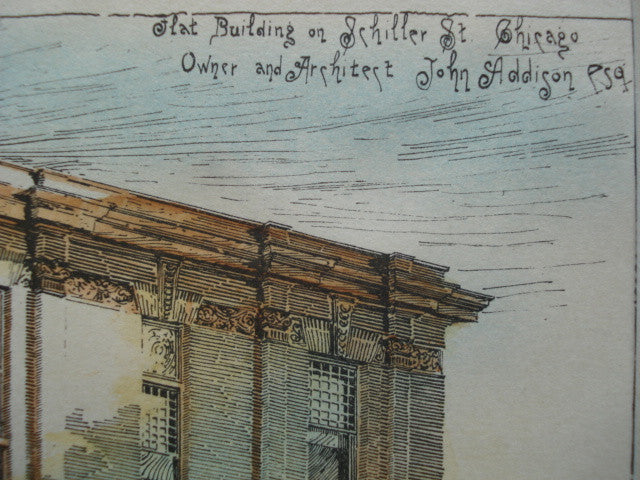 Flat Building on Schiller St. Chicago
Owner and Architect John Addison Esq